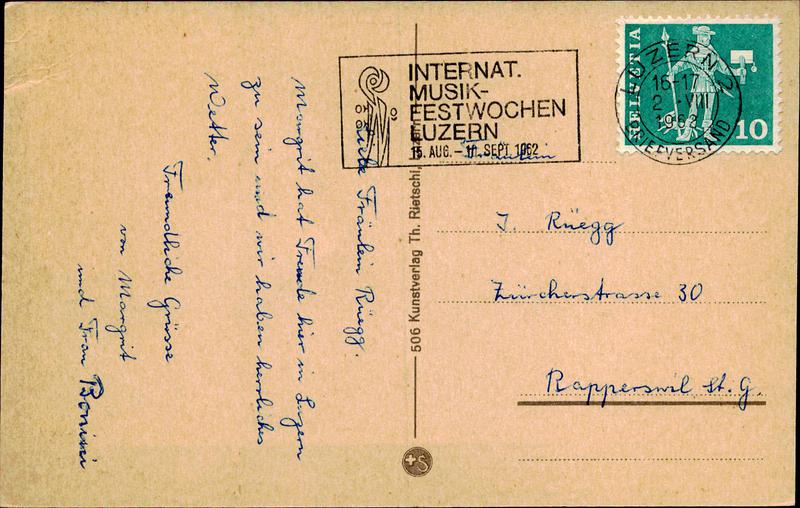 INTERNAT.
MUSIK-
FESTWOCHEN
LUZERN
15. AUG. – 10. SEPT. 1962
HELVETIA
10
LUZERN 2
16-17
2.-VIII
1962
BRIEFVERSAND
Liebe Fräulein Rüegg.
Margrit hat Freude hier in Luzern
zu sein und wir haben herrliches
Wetter.
Freundliche Grüsse
von Margrit
und Frau
506 Kunstverlag Th. Rietschi,
Fräulein
J. Rüegg
Zürcherstrasse 30
Rapperswil St. G.